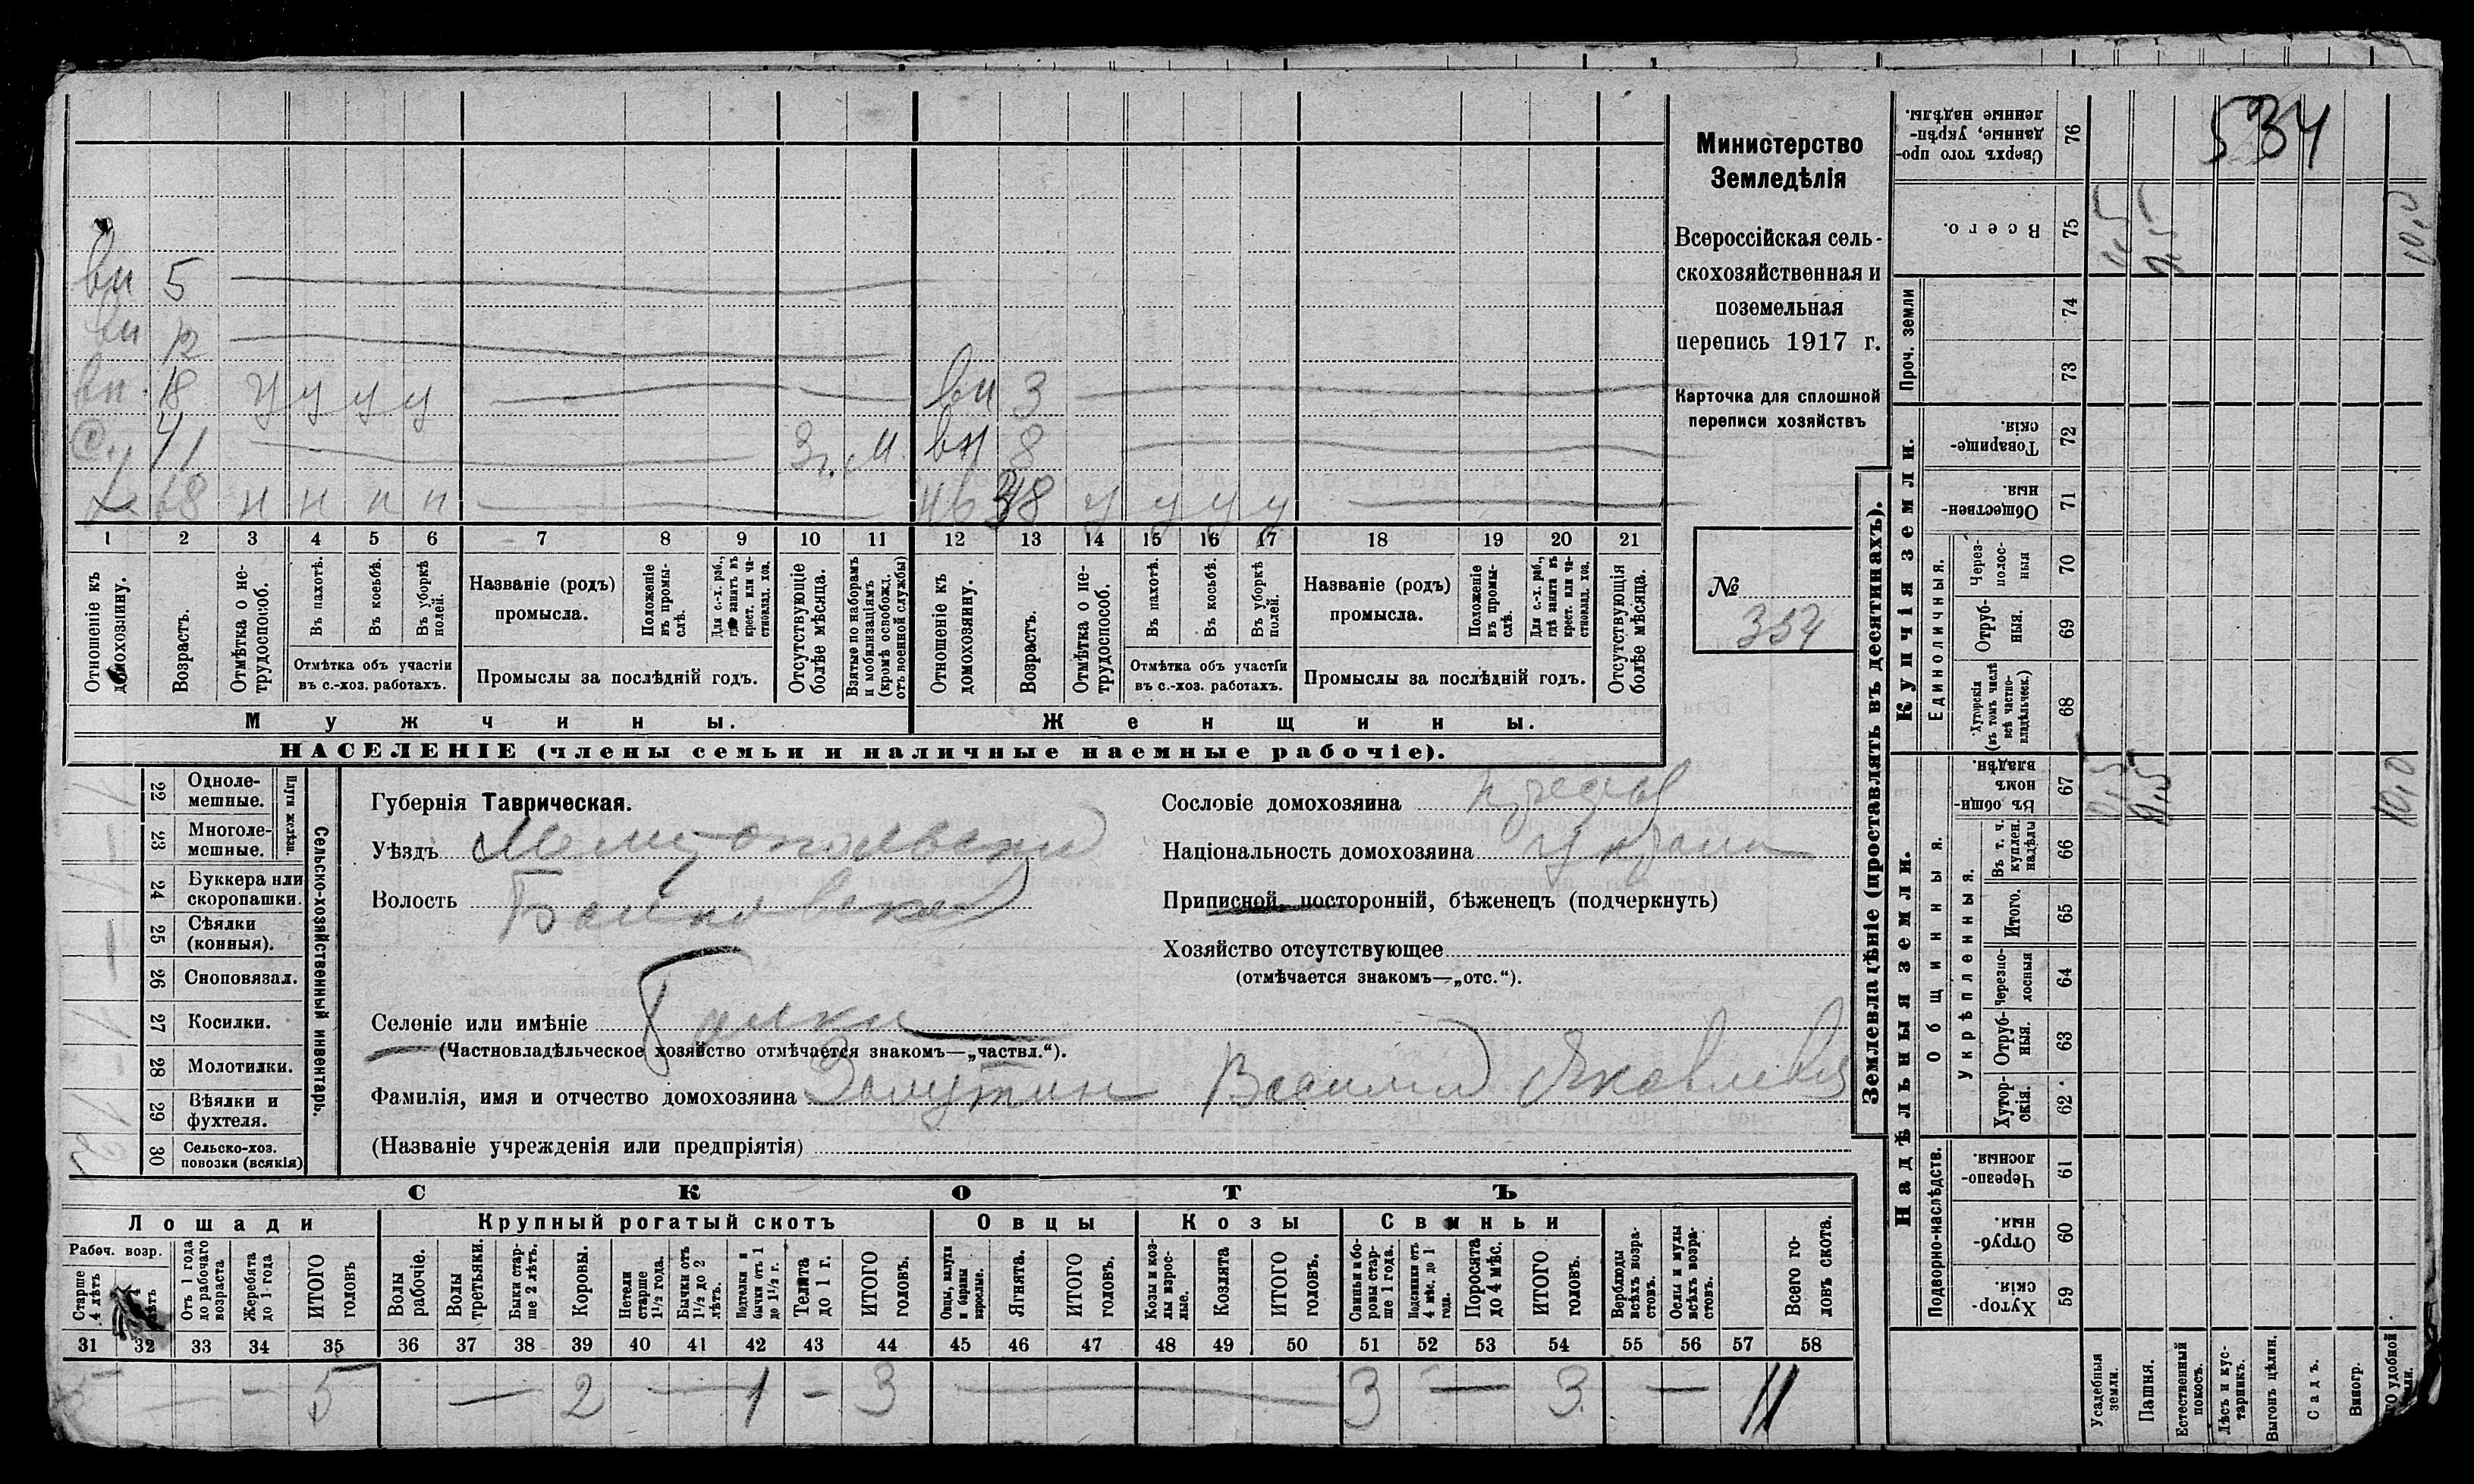 Министерство
Земледѣлія
Всероссійская сель-
скохозяйственная и
поземельная
перепись 1917 г.
Карточка для сплошной
переписи хозяйствъ
№
354
534
вн 5
вн 12
вн. 18 у у у у
вн 3
С. 41 3 г. М.
вн 8
х 68 н н н н
38 у у у у
1 2 3 4 5 6 7 8 9 10 11 12 13 14 15 16 17 18 19 20 21
Отношеніе къ домохозяину.
Возрастъ.
Отмѣтка о не-трудоспособ.
Въ пахотѣ.
Въ косьбѣ.
Въ уборкѣ полей.
Отмѣтка объ участіи въ с.-хоз. работахъ.
Названіе (родъ) промысла.
Положеніе въ промы-слѣ.
Для с.-х. раб., гдѣ занятъ въ крест. или ча-стновлад. хоз.
Промыслы за послѣдній годъ.
Отсутствующіе болѣе мѣсяца.
Взятые по наборамъ и мобилизаціямъ (кромѣ освобожд. отъ военной службы)
Отношеніе къ домохозяину.
Возрастъ.
Отмѣтка о не-трудоспособ.
Въ пахотѣ.
Въ косьбѣ.
Въ уборкѣ полей.
Отмѣтка объ участіи въ с.-хоз. работахъ.
Названіе (родъ) промысла.
Положеніе въ промы-слѣ.
Для с.-х. раб., гдѣ занята въ крест. или ча-стновлад. хоз.
Промыслы за послѣдній годъ.
Отсутствующія болѣе мѣсяца.
Мужчины.
Женщины.
НАСЕЛЕНІЕ (члены семьи и наличные наемные рабочіе).
Сельско-хозяйственный инвентарь.
Плуги желѣзн.
22 Одноле-мешные.
23 Многоле-мешные.
24 Буккера или скоропашки.
25 Сѣялки (конныя).
26 Сноповязал.
27 Косилки.
28 Молотилки.
29 Вѣялки и фухтеля.
30 Сельско-хоз. повозки (всякія)
Губернія Таврическая.
Уѣздъ Мелитопольскій
Волость
Селеніе или имѣніе
(Частновладѣльческое хозяйство отмѣчается знакомъ—„частвл.“).
Фамилія, имя и отчество домохозяина Василій Яковлевъ
(Названіе учрежденія или предпріятія)
Сословіе домохозяина
Національность домохозяина Украин
Приписной, посторонній, бѣженецъ (подчеркнуть)
Хозяйство отсутствующее
(отмѣчается знакомъ—„отс.“).
СКОТЪ
Лошади
Крупный рогатый скотъ
Овцы
Козы
Свиньи
Рабоч. возр.
Старше 4 лѣтъ
Отъ 1 года до рабочаго возраста
Жеребята до 1 года
ИТОГО головъ
Волы рабочіе.
Волы третьяки.
Быки стар-ше 2 лѣтъ.
Коровы.
Нетели старше 1½ года.
Бычки отъ 1½ до 2 лѣтъ.
Подтелки и бычки отъ 1 до 1½ г.
Телята до 1 г.
ИТОГО головъ.
Овцы, валухи и бараны взрослые.
Ягнята.
ИТОГО головъ.
Козы и коз-лы взрос-лые.
Козлята
ИТОГО головъ.
Свиньи и бо-ровы стар-ше 1 года.
Подсвинки отъ 4 мѣс. до 1 года.
Поросята до 4 мѣс.
ИТОГО головъ.
Верблюды всѣхъ возра-стовъ.
Ослы и мулы всѣхъ возра-стовъ.
Всего го-ловъ скота.
31 32 33 34 35 36 37 38 39 40 41 42 43 44 45 46 47 48 49 50 51 52 53 54 55 56 57 58
5 — - 5 — 2 — 1 - 3 — 3 — 3 — 11
Землевладѣніе (проставлять въ десятинахъ).
Надѣльныя земли.
Купчія земли.
Проч. земли
Подворно-наслѣдств.
Общинныя.
Укрѣпленныя.
Единоличныя.
Сверхъ того про-данные, укрѣп-ленные надѣлы. 76
Всего. 75
74
73
Товарище-скія. 72
Обществен-ныя. 71
Через-полос-ныя 70
Отруб-ныя. 69
Хуторскія (въ томъ числѣ всѣ частно-владѣльческ.) 68
Въ общин-номъ владѣн. 67
Въ т. ч. куплен. надѣлы 66
Итого. 65
Черезпо-лосныя 64
Отруб-ныя. 63
Хутор-скія. 62
Черезпо-лосныя. 61
Отруб-ныя. 60
Хутор-скія. 59
Усадебныя земли.
Пашня.
Естественный покосъ.
Лѣсъ и кус-тарникъ.
Выгонъ цѣлин.
Садъ.
Виногр.
10,0
10,0